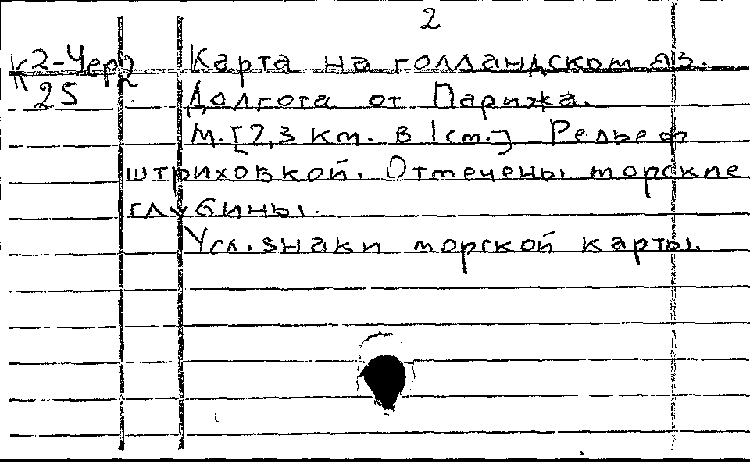 2
К2-Чер2 Карта на голландском яз.
25 Долгота от Парижа.
М.[2,3 км. в 1см.] Рельеф
штриховкой. Отмечены морские
глубины.
Усл. знаки морской карты.